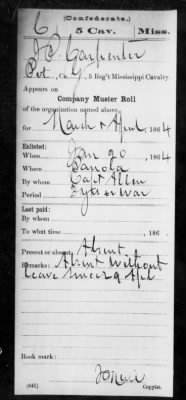 (Confederate.)
C 5 Cav. Miss.
J P Carpenter
Pvt, Co. G, 5 Reg't Mississippi Cavalry.
Appears on
Company Muster Roll
of the organization named above,
for March & April, 1864
Enlisted:
When Jan 20, 1864
Where Panola
By whom Capt Allen
Period 3 yrs or war
Last paid:
By whom
To what time , 186 .
Present or absent Absent
Remarks: Absent without
leave since 29 Apl
Book mark:
(642) Copyist.